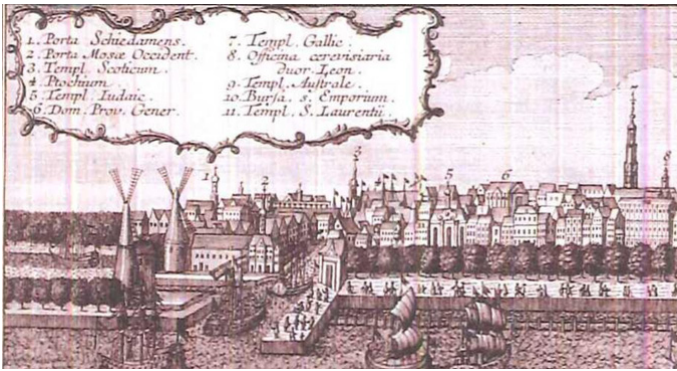 1. Porta Schiedamens.
2 Porta Mosæ Occident.
3. Templ. Scoticum.
4 Ptochium
5. Templ. Iudaic.
6. Dom. Prov. Gener.
7. Templ. Gallic.
8. Officina cerevisiaria
duor. Leon.
9. Templ. Australe.
10. Bursa, s. Emporium.
11. Templ. S. Laurentii.
1
2
3
5
6
7
8